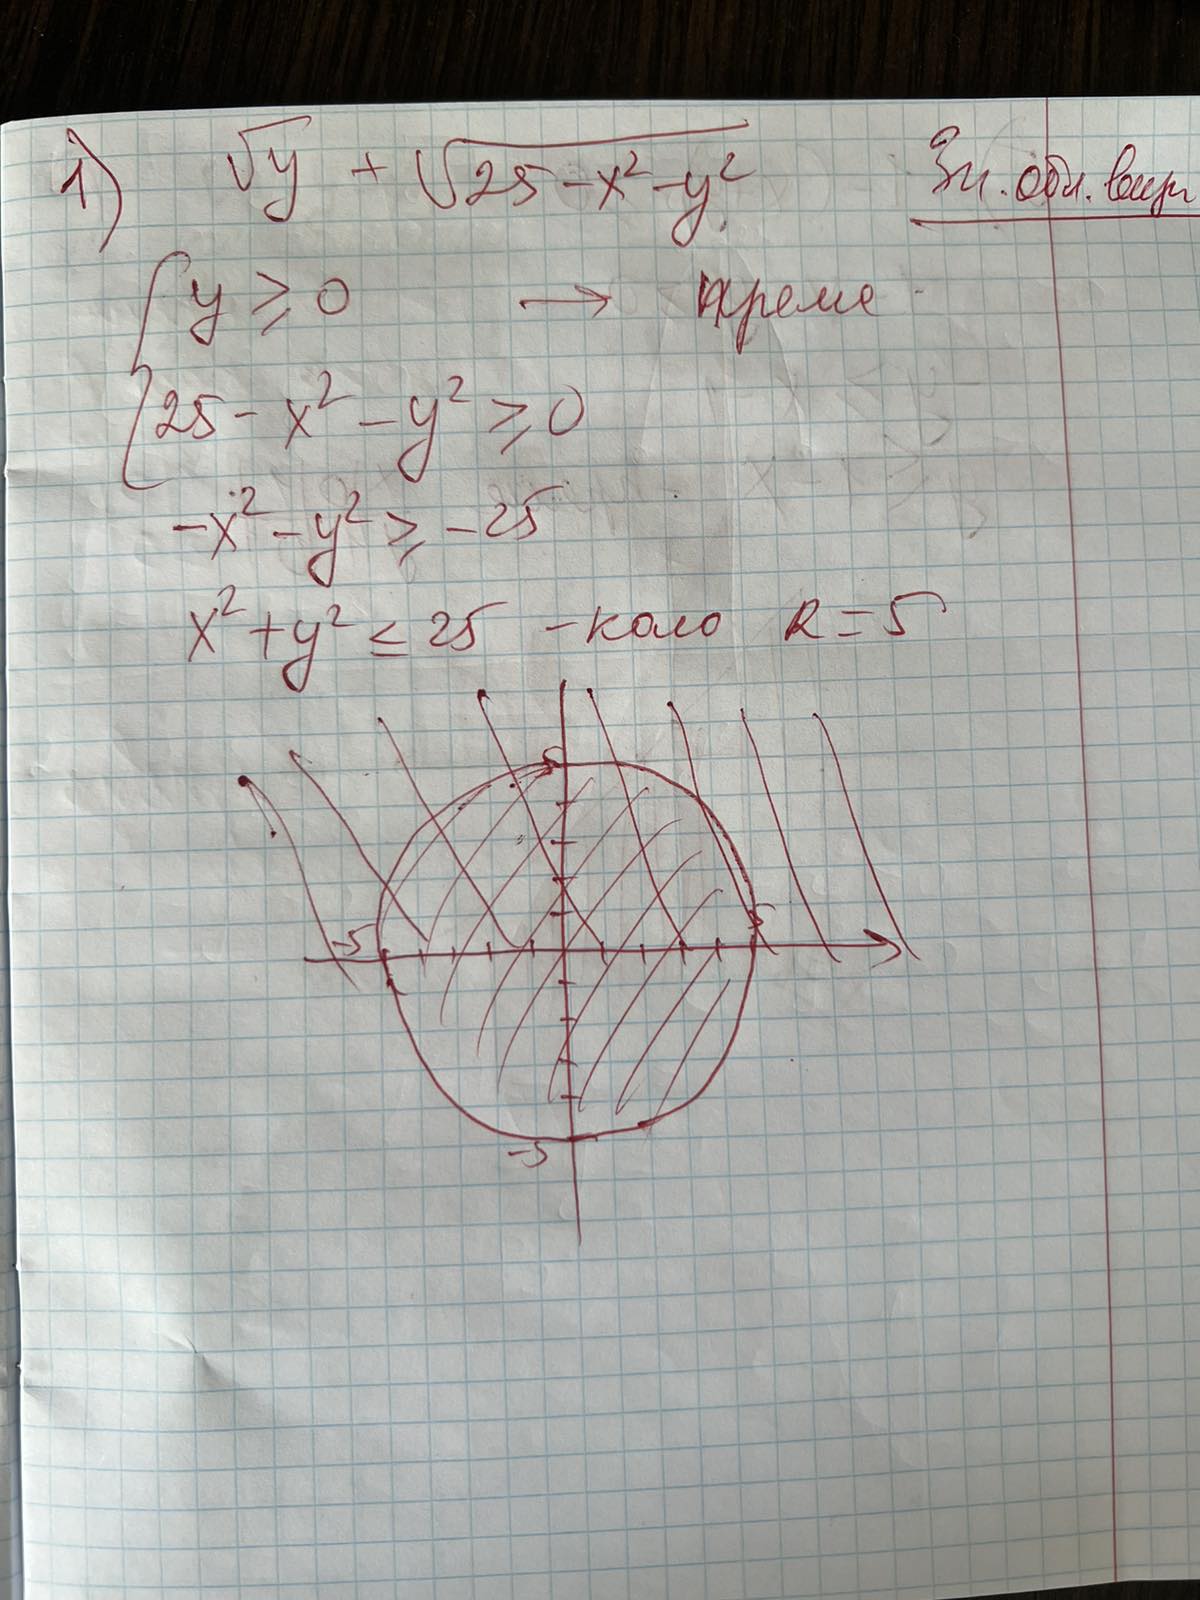 1) √y + √25-x²-y² Зн. обл. визн
{ y ≥ 0 →
25 - x² - y² ≥ 0
-x² - y² ≥ -25
x² + y² ≤ 25 - коло R = 5
5
-5 5
-5